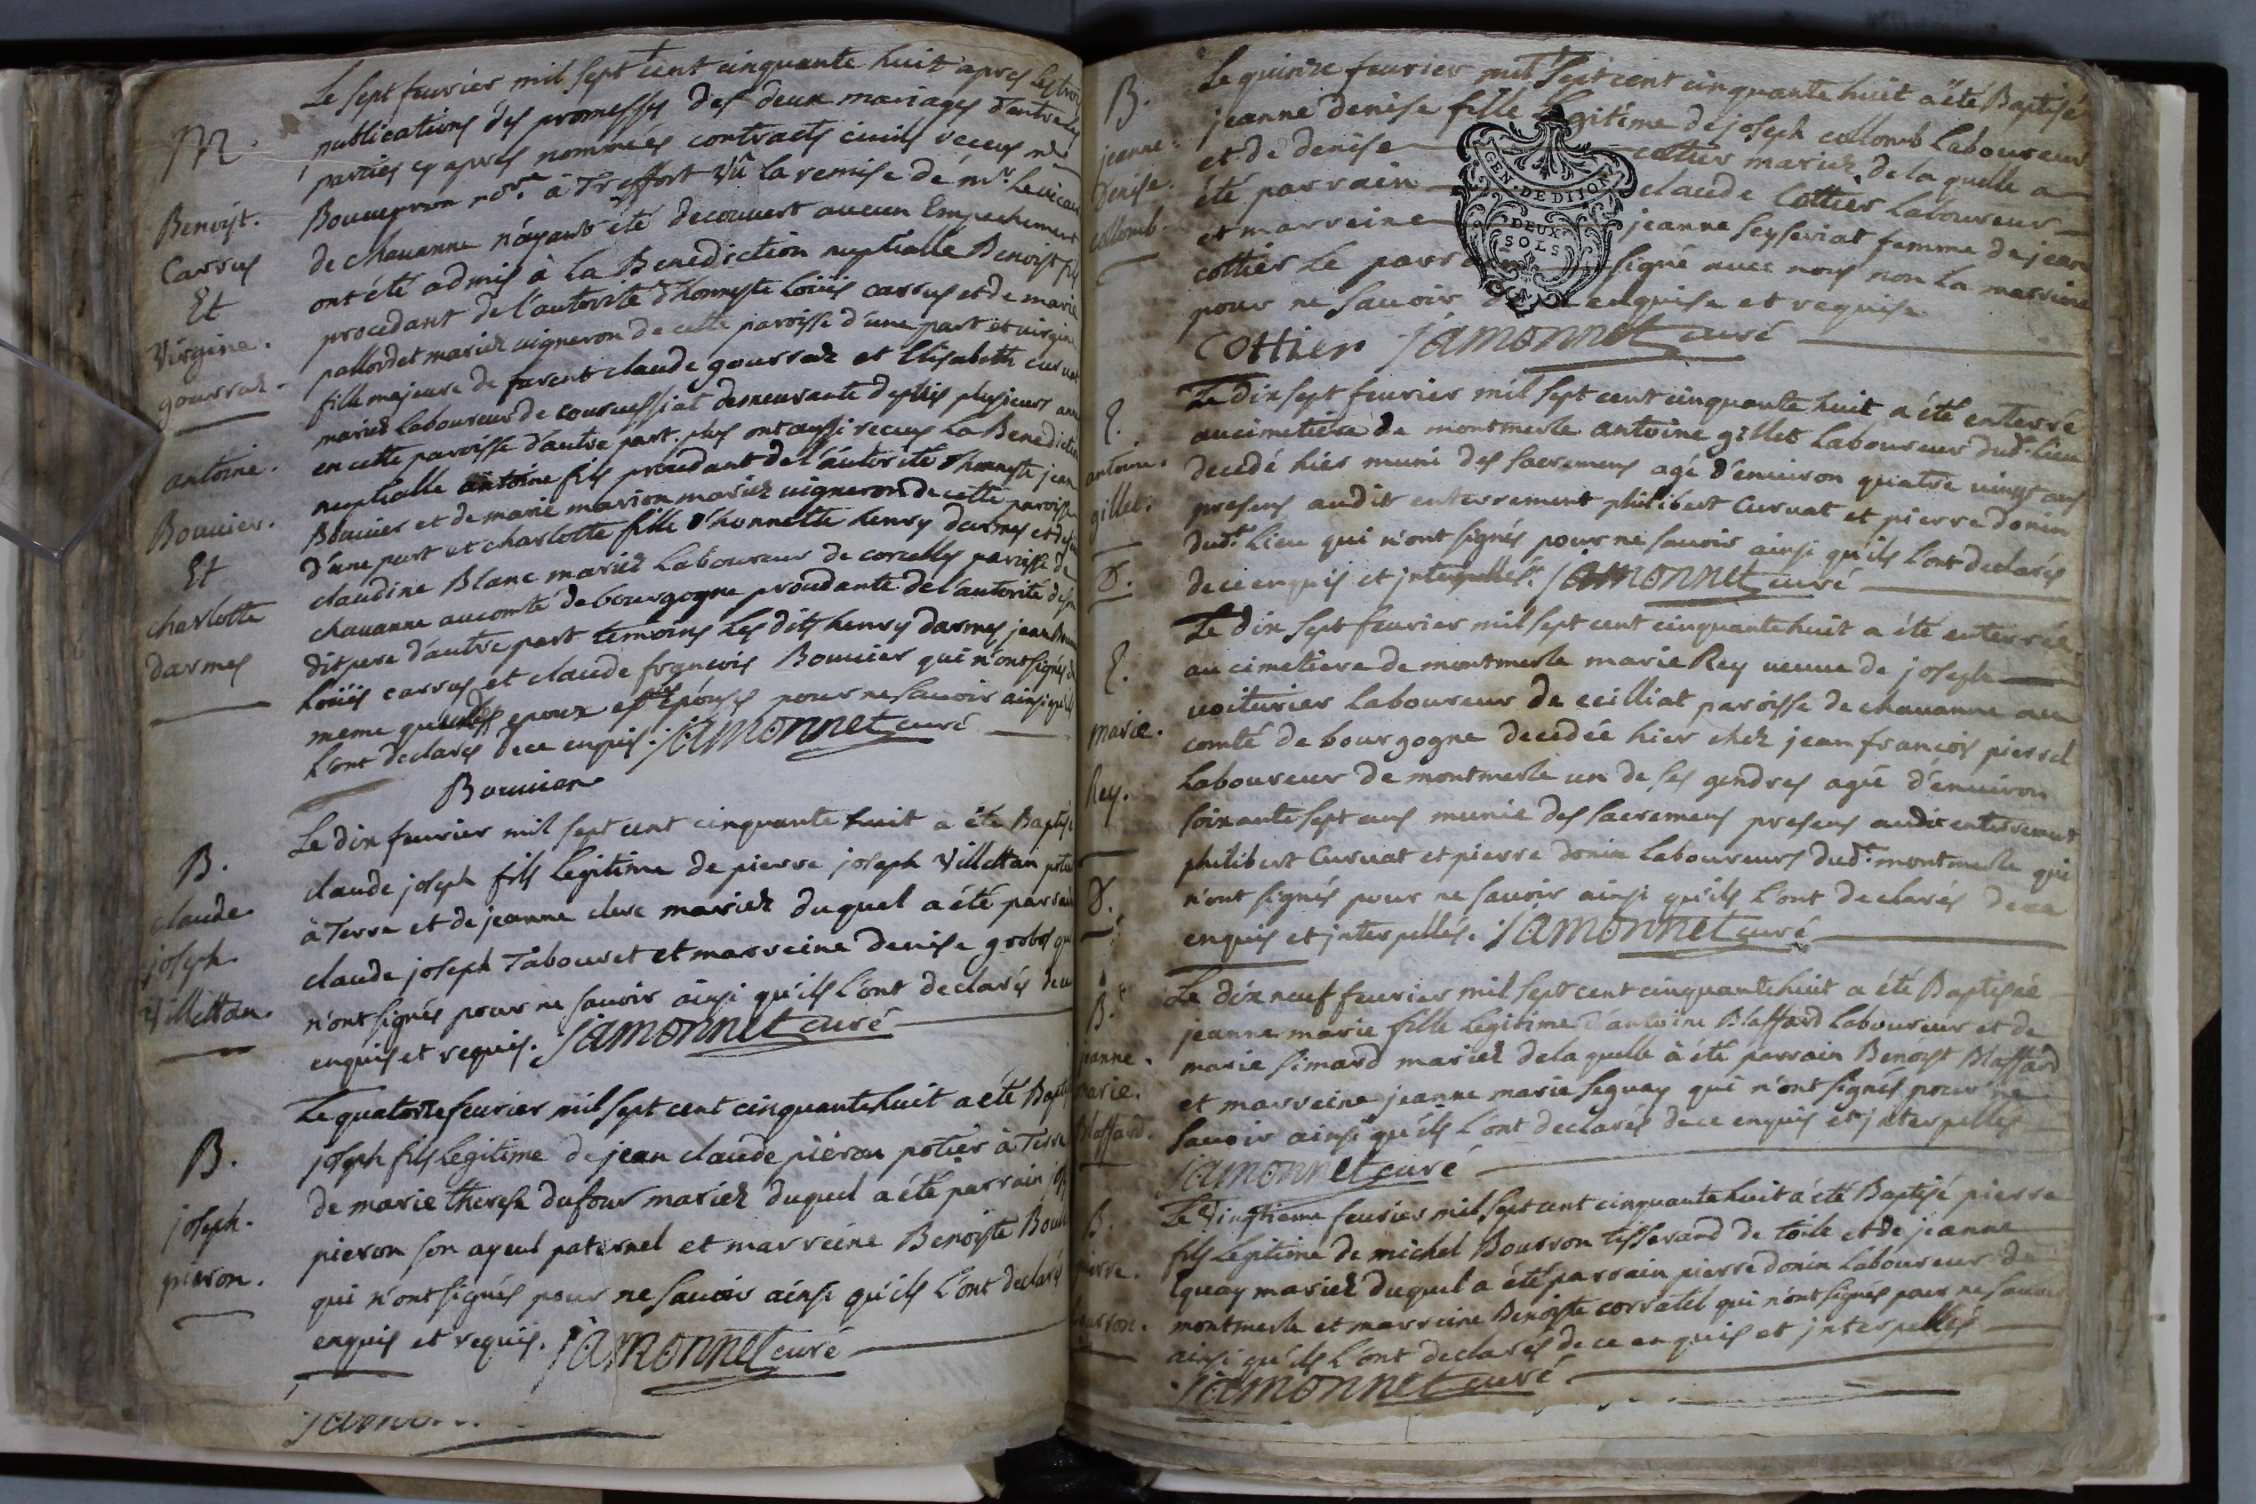 M.
Benoist.
Carrus
Et
Virginie.
gourraz.
antoine.
Bouuier.
Et
charlotte
darmes
Le sept feurier mil sept cent cinquante huit apres les trois
publications des promesses des deux mariages d'entre les
parties cy apres nommées contracts ciuils receus
à Treffort vû la remise de mr. le uicaire
de chauanne n'ayant été decouuert aucun Empechement
ont été admis à la Benediction nuptialle Benoist fils
procedant de l'autorité d'honneste Loüis carrus et de marie
mariez uigneron de cette paroisse d'une part et uirginie
fille majeure de claude gourraz et Elisabeth curuat
mariez Laboureur de demeurante depuis plusieurs
en cette paroisse d'autre part. plus ont aussi receus La Benediction
nuptialle antoine fils procedant de l'autorité d'honneste jean
Bouuier et de marie marion mariez uigneron de cette paroisse
d'une part et charlotte fille d'honneste henry darmes et
claudine Blanc mariez Laboureur de corcelles paroisse de
chauanne au comté de bourgogne procedante de l'autorité
dit pere d'autre part temoins Les dits henry darmes jean Bouuier
Loüis carrus et claude françois Bouuier qui n'ont signés
meme que epoux et epouses pour ne sauoir ainsi qu'ils
L'ont declarés de ce enquis. jamonnet curé
Bouuier
B.
claude
joseph.
Villettan.
Le dix feurier mil sept cent cinquante huit a été Baptisé
claude joseph fils Legitime de pierre joseph Villettan potier
à Terre et de jeanne clerc mariez duquel a été parrain
claude joseph Tabouret et marreine denise qui
n'ont signés pour ne sauoir ainsi qu'ils L'ont declarés de ce
enquis et requis. jamonnet curé
B.
joseph.
piéron.
Le quatorze feurier mil sept cent cinquante huit a été Baptisé
joseph fils Legitime de jean claude piéron potier à Terre
de marie therese dufour mariez duquel a été parrain
pieron son ayeul paternel et marreine Benoiste
qui n'ont signés pour ne sauoir ainsi qu'ils L'ont declaré
enquis et requis. jamonnet curé
B.
jeanne.
denise.
collomb.
Le quinze feurier mil sept cent cinquante huit a été Baptisé
jeanne denise fille Legitime de joseph collomb Laboureur
et de denise cottier mariez de la quelle a
été parrain claude Cottier Laboureur
et marreine jeanne seyseriat femme de jean
cottier Le parrain signé auec nous non La marreine
pour ne sauoir de ce enquise et requise
GEN. DE DIJON
DEUX
SOLS
Cottier jamonnet curé
E.
antoine.
gillet.
D.
Le dix sept feurier mil sept cent cinquante huit a été enterré
au cimetiere de montmerle antoine gillet Laboureur dudt. Lieu
decedé hier muni des sacremens agé d'enuiron quatre uingt ans
presens audit enterrement philibert Curuat et pierre donin
dudt. Lieu qui n'ont signés pour ne sauoir ainsi qu'ils L'ont declarés
de ce enquis et jnterpellés. jamonnet curé
E.
marie.
Rey.
D.
Le dix sept feurier mil sept cent cinquante huit a été enterrée
au cimetiere de montmerle marie Rey ueuue de joseph
uoiturier Laboureur de ceilliat paroisse de chauanne au
comté de bourgogne decedée hier chez jean françois pierrel
Laboureur de montmerle un de ses gendres agée d'enuiron
soixante sept ans munie des sacremens presens audit enterrement
philibert Curuat et pierre donin Laboureurs dudt. montmerle qui
n'ont signés pour ne sauoir ainsi qu'ils L'ont declarés de ce
enquis et jnterpellés. jamonnet curé
B.
jeanne.
marie.
Blaffard.
Le dix neuf feurier mil sept cent cinquante huit a été Baptisée
jeanne marie fille Legitime d'antoine Blaffard Laboureur et de
marie simard mariez de la quelle à été parrain Benoist Blaffard
et marreine jeanne marie seguay qui n'ont signés pour ne
sauoir ainsi qu'ils L'ont declarés de ce enquis et jnterpellés
jamonnet curé
B.
pierre.
Bourron.
Le Vingtieme feurier mil sept cent cinquante huit a été Baptisé pierre
fils Legitime de michel Bourron tisserand de toile et de jeanne
mariez duquel a été parrain pierre donin Laboureur de
montmerle et marreine Benoiste corratel qui n'ont signés pour ne sauoir
ainsi qu'ils L'ont declarés de ce enquis et jnterpellés
jamonnet curé